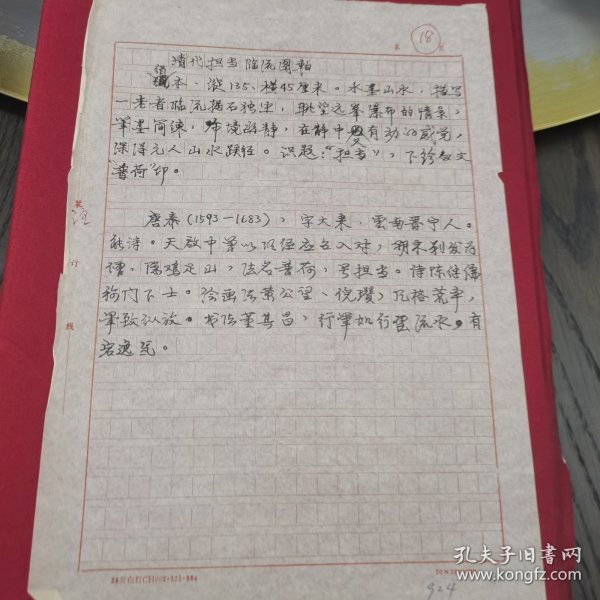 第 18 页
清代担当临流图轴
纸本.纵135、横45厘米。水墨山水,描写
一老者临流据石独坐,眺望远峯瀑布的情景,
笔墨简练,环境幽静,在静中又有动的感觉,
深得元人山水蹊径。识题:"担当",下钤白文
"普荷"印。
唐泰(1593—1683),字大来,雲南晋宁人。
能诗。天啟中曾以明经应召入对,明末剃发为
僧,隐鸡足山,法名普荷,号担当。诗陈继儒
称门下士。绘画法黄公望、倪瓒,风格荒率,
笔致纵放。书法董其昌,行笔如行雲流水。有
宕逸气。
装
订
线
924
孔夫子旧书网
www.kongfz.com